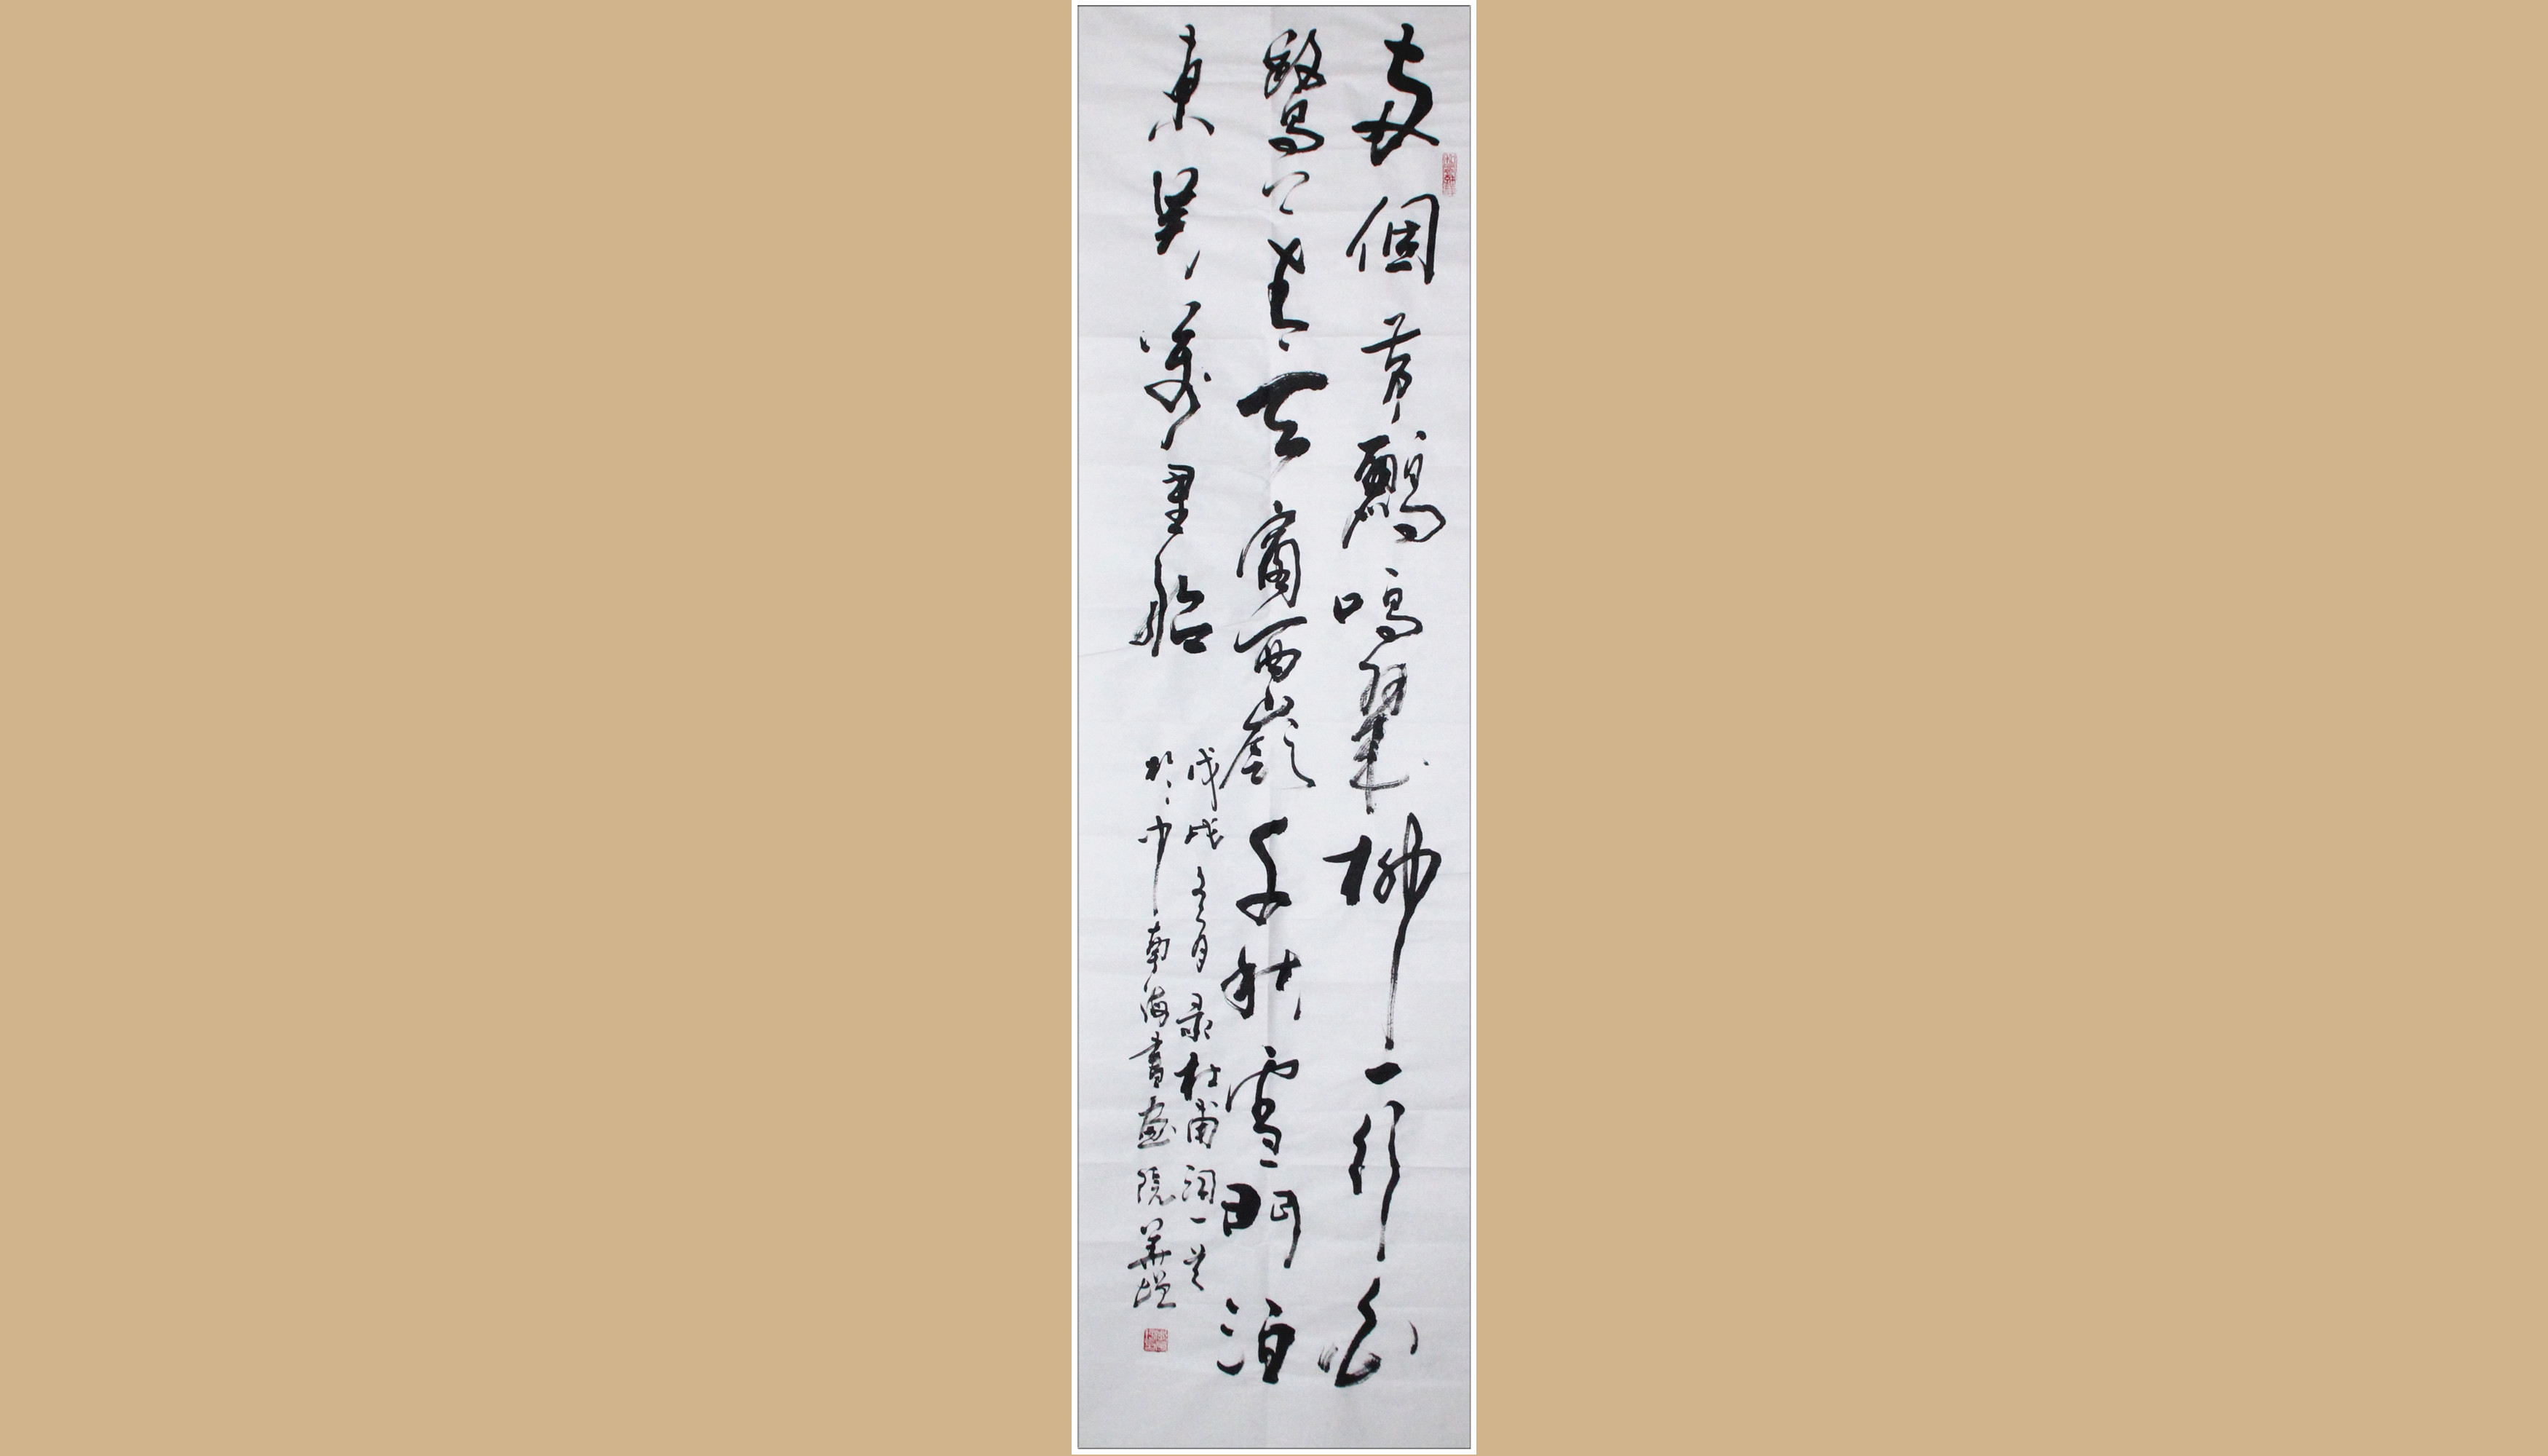 兩個黃鸝鳴翠柳一行白
鷺上青天窗西嶺千秋雪門泊
東吳萬里船
戊戌冬月录杜甫詞一首
於中南海書畫院華